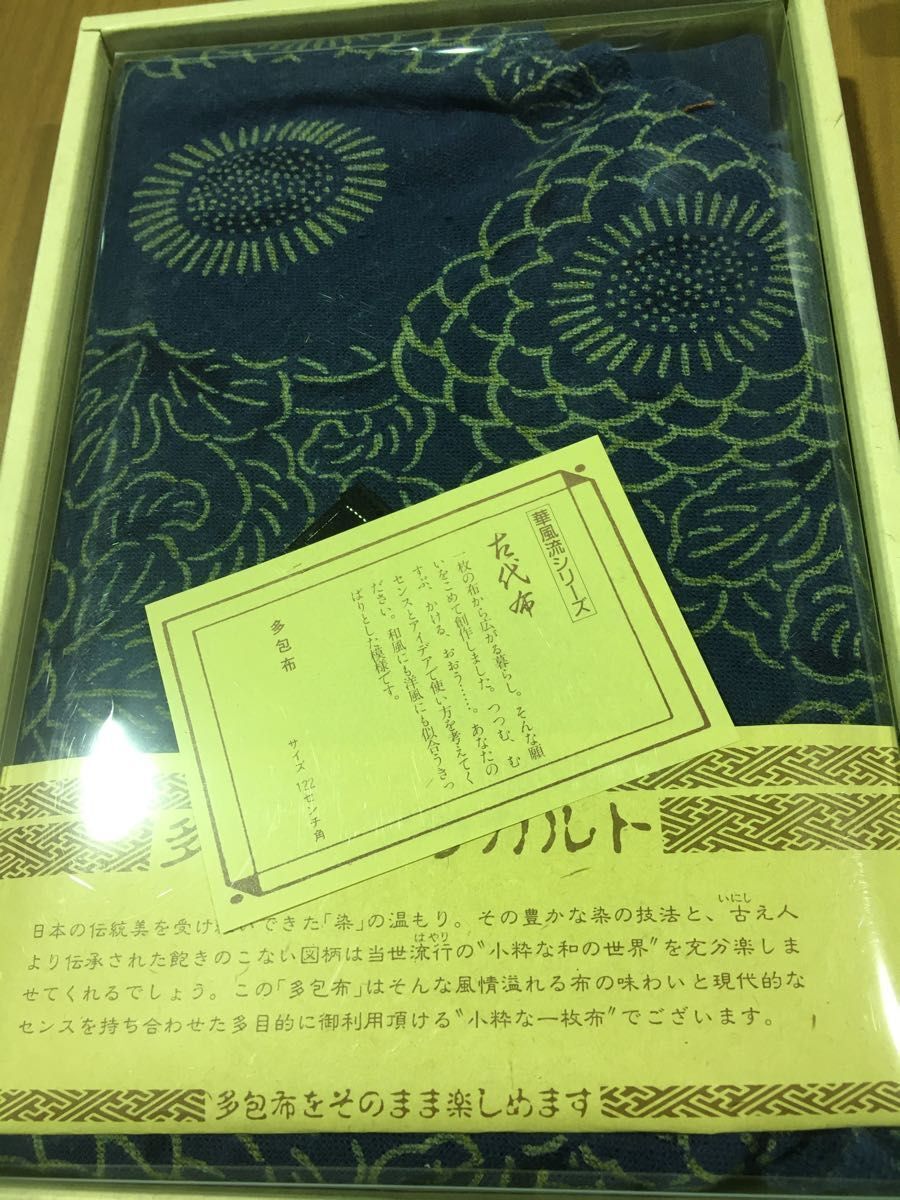 華風流シリーズ
古代布
一枚の布から広がる暮らし。そんな願
いをこめて創作しました。つつむ、む
すぶ、かける、おおう……。あなたの
センスとアイデアで使い方を考えてく
ださい。和風にも洋風にも似合うきっ
ぱりとした模様です。
多包布
サイズ 122センチ角
カルト
日本の伝統美を受け いできた「染」の温もり。その豊かな染の技法と、古え人
いにし
より伝承された飽きのこない図柄は当世流行の“小粋な和の世界”を充分楽しま
はやり
せてくれるでしょう。この「多包布」はそんな風情溢れる布の味わいと現代的な
センスを持ち合わせた多目的に御利用頂ける“小粋な一枚布”でございます。
多包布をそのまま楽しめます